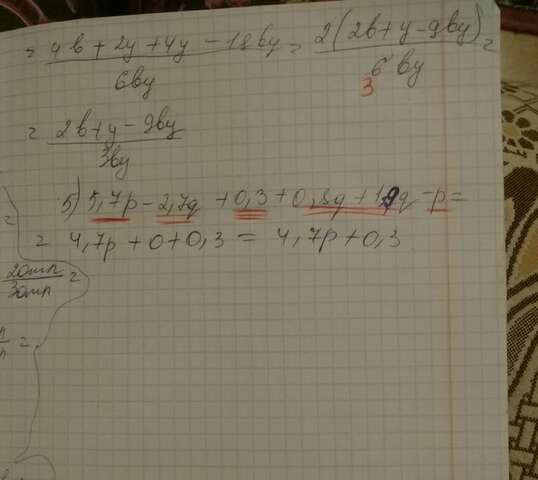 = 4b + 2y + 4y - 18by / 6by = 2(2b + y - 9by) / 6by =
3
= 2b + y - 9by / 3by
5) 5,7p - 2,7q + 0,3 + 0,8q + 1,9q - p =
= 4,7p + 0 + 0,3 = 4,7p + 0,3
20mn / 30mn =
n / n =